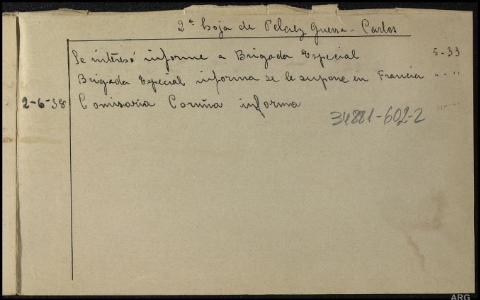 2ª hoja de Pelaez Guerra - Carlos
Se interesó informe a Brigada Especial 5-33
Brigada Especial informa se le supone en Francia " - "
2-6-38 Comisaría Coruña informa " - "
34881-602-2
ARG